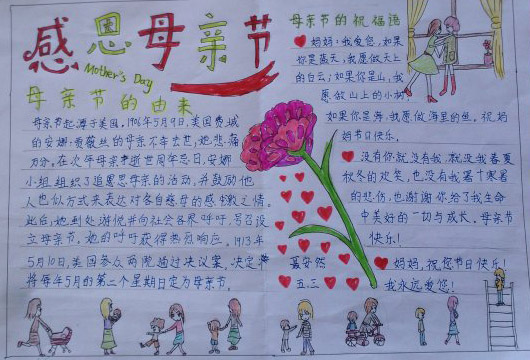 感恩母亲节
Mother's Day
母亲节的由来
母亲节起源于美国,1906年5月9日,美国费城
的安娜·贾薇丝的母亲不幸去世,她悲痛
万分。在次年母亲逝世周年忌日,安娜
小姐组织了追思母亲的活动,并鼓励他
人也以方式来表达对各自慈母的感激之情。
此后,她到处游说并向社会各界呼吁,号召设
立母亲节。她的呼吁获得热烈响应。1913年
5月10日,美国参众两院通过决议案,决定
将每年5月的第二个星期日定为母亲节。
母亲节的祝福语
妈妈:我爱您,如果
你是蓝天,我愿做天上
的白云;如果你是山,我
愿做山上的小树;
如果你是海,我愿做海里的鱼。祝妈
妈节日快乐。
没有你就没有我,就没我春夏
秋冬的欢笑,也没有我寒十寒暑
的悲伤,也谢谢你给了我生命
中美好的一切与成长。母亲节
快乐!
妈妈,祝您节日快乐!
我永远爱您!
安然
五.三